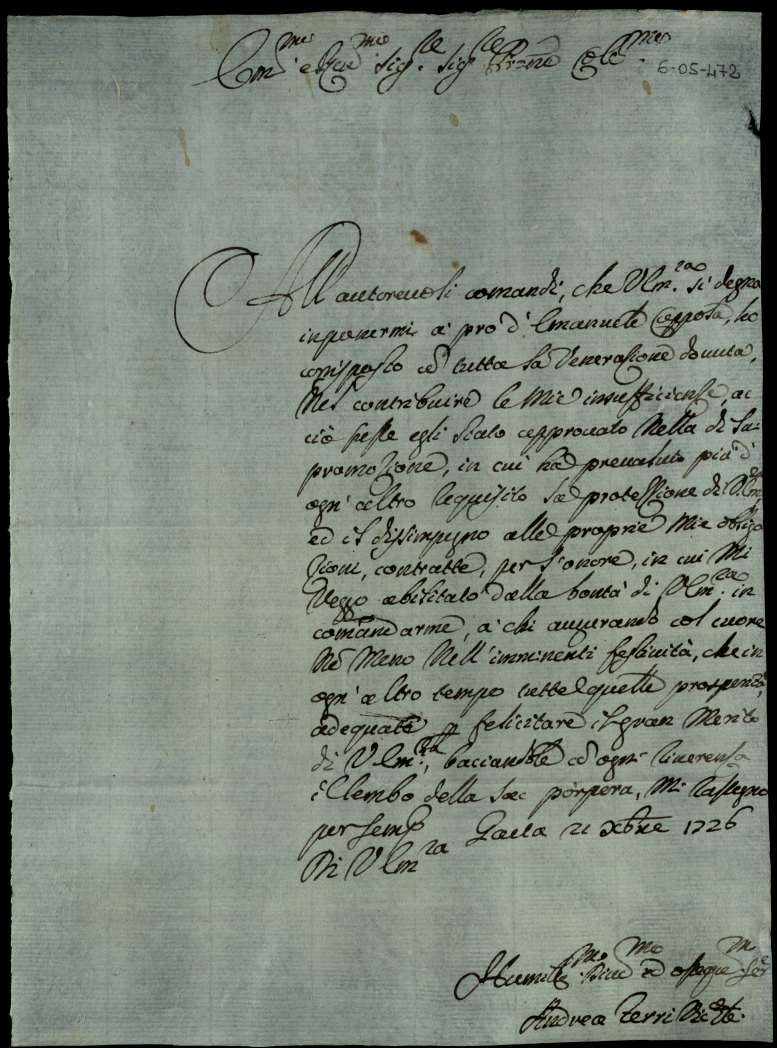 Em.mo e Rev.mo Sig.re Sig.re Prone Col.mo
6-05-472
All'autorevoli comandi, che V Em.za si degna
inponermi à pro d'Emanuele Capposa, ho
corrisposto cō tutta la Venerazione dovuta,
Nel contribuire le Mie insufficienze, ac
ciò fosse egli stato approvato Nella di Sua
promozione, in cui hà prevaluto più d'
ogn'altro requisito la protezzione di V. Em.za
ed il dissimpegno alle proprie Mie obliga
zioni, contratte, per l'onore, in cui Mi
Veggo abilitato dalla bontà di V Em.za in
comandarme, à chi augurando col cuore
Nō Meno Nell'imminenti festività, che in
ogn'altro tempo tutte quelle prosperità
adequate p felicitare il gran Merito
di V Em.za, baciandole cō ogni riverenza
il lembo della sac porpora, Mi rassegno
per sempre Gaeta 21 Xbre 1726
Di V Em.za
Humiliss.mo Div.mo ed osseq.mo Ser.e
Andrea Terri